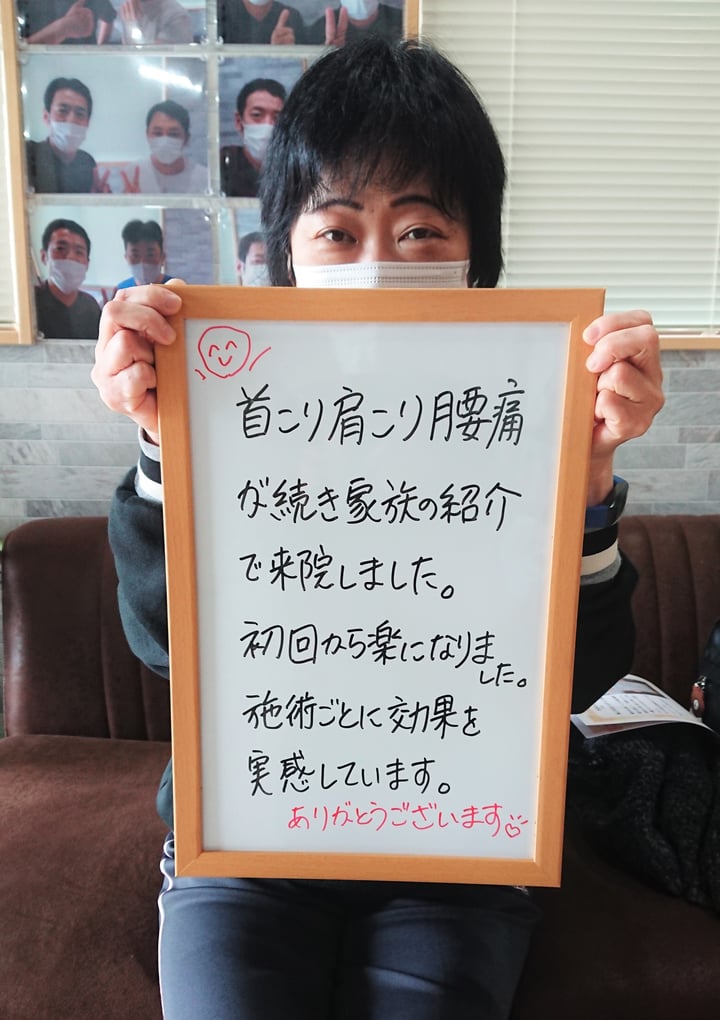 首こり肩こり腰痛
が続き家族の紹介
で来院しました。
初回から楽になりま
した。
施術ごとに効果を
実感しています。
ありがとうございます